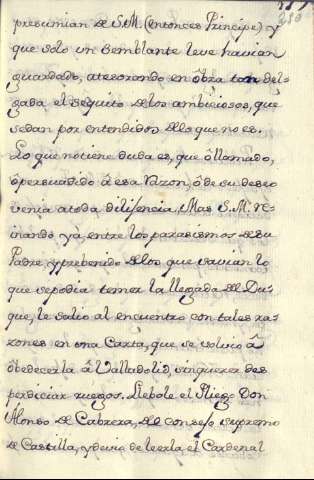 presumian de S.M. (entonces Principe) y
que solo un semblante leve havian
guardado, atesorando en obra tan del-
gada el sequito de los ambiciosos, que
sedan por entendidos de lo que no es.
Lo que notiene duda es, que ò llamado,
ò persuadido â esa Razon, ô de su deseo
venia atoda dilijencia, Mas S.M. re-
inando yâ, entre los parasismos de su
Padre, y prebenido de los que savian lo
que sepodia temer la llegada de Du-
que, le salio al encuentro con tales ra-
zones en una Carta, que se volvio â
ôbedecerla â Valladolid, sinquerer des-
perdiciar ruegos. Llebole el Pliego Don
Alonso de Cabrera, del consejo supremo
de Castilla, y devio de leerla, el Cardenal